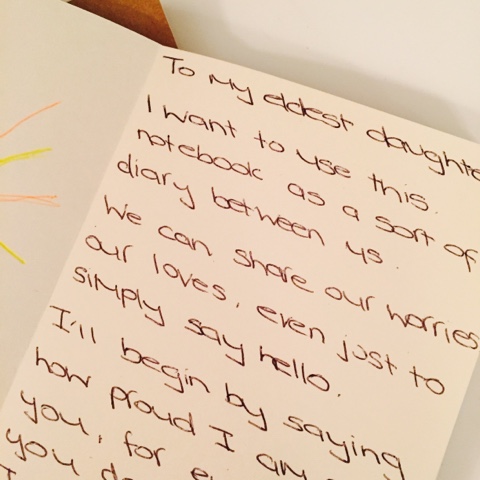 To my eldest daughte
I want to use this
notebook as a sort of
diary between us.
We can share our worries
our loves, even just to
simply say hello.
I'll begin by saying
how proud I am
you, for
you